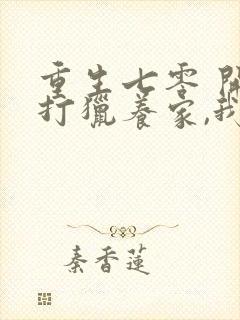 重生七零 開
打獵養家,我
秦香蓮